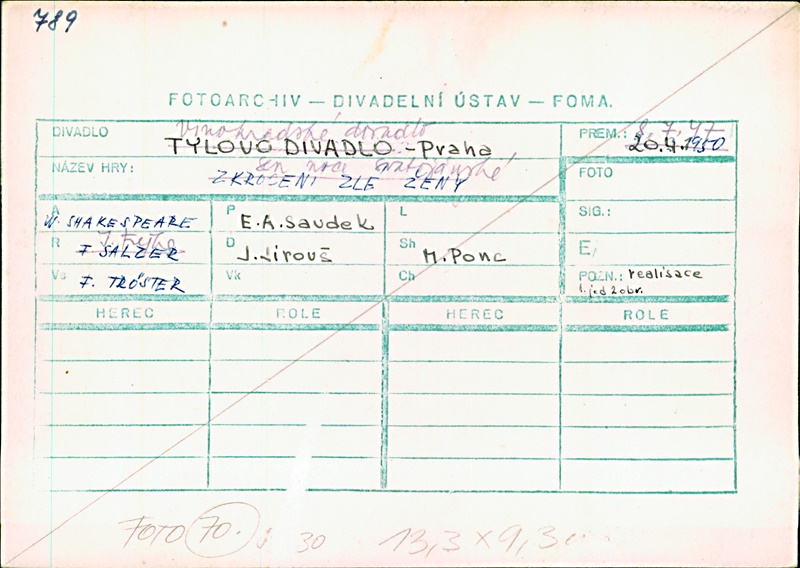 789
FOTOARCHIV — DIVADELNÍ ÚSTAV — FOMA.
DIVADLO Vinohradské divadlo PREM.: 8. 7. 47
TYLOVO DIVADLO - Praha 20.4.1950
NÁZEV HRY: Sen noci svatojánské FOTO
ZKROCENÍ ZLÉ ŽENY
A W. SHAKESPEARE P E.A.Saudek L SIG.:
R J. Frejka D J.Jirouš Sh M.Ponc E/
F SALZER
Vs F. TRÖSTER Vk Ch POZN.: realisace
1. jed 2 obr.
HEREC ROLE HEREC ROLE
FOTO 70. 30 13,3 x 9,3